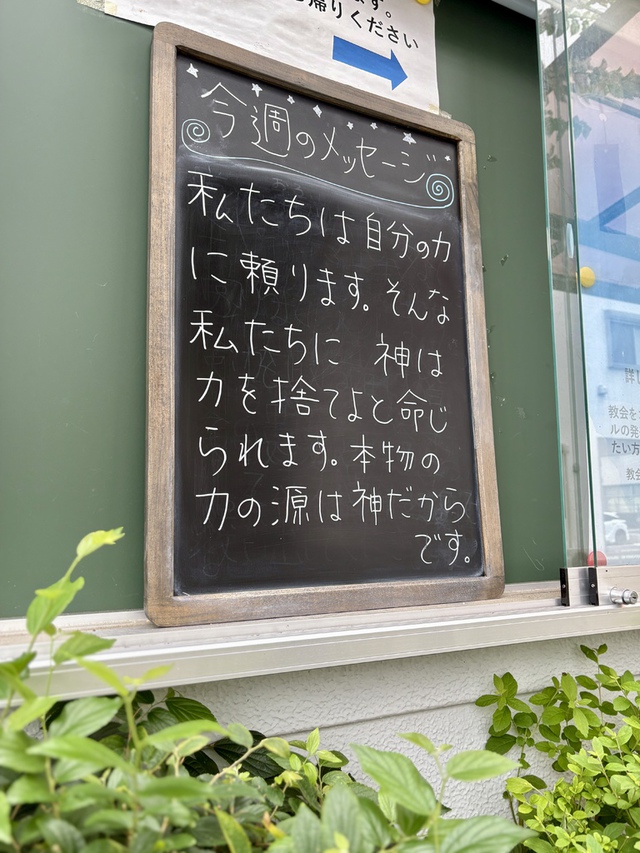 ます。
帰りください
今週のメッセージ
私たちは自分の力
に頼ります。そんな
私たちに 神は
力を捨てよと命じ
られます。本物の
力の源は神だから
です。
教会を
ルの発
たい方
教会